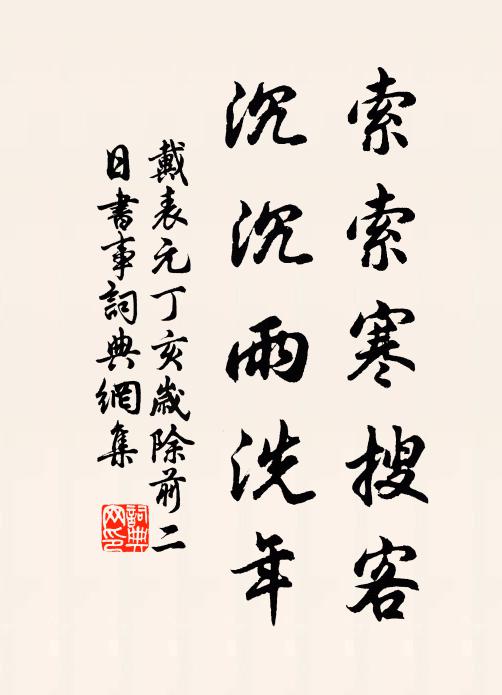 索索寒搜客
沉沉雨洗年
戴表元丁亥歲除前二
日書事詞典網集
詞典
网印